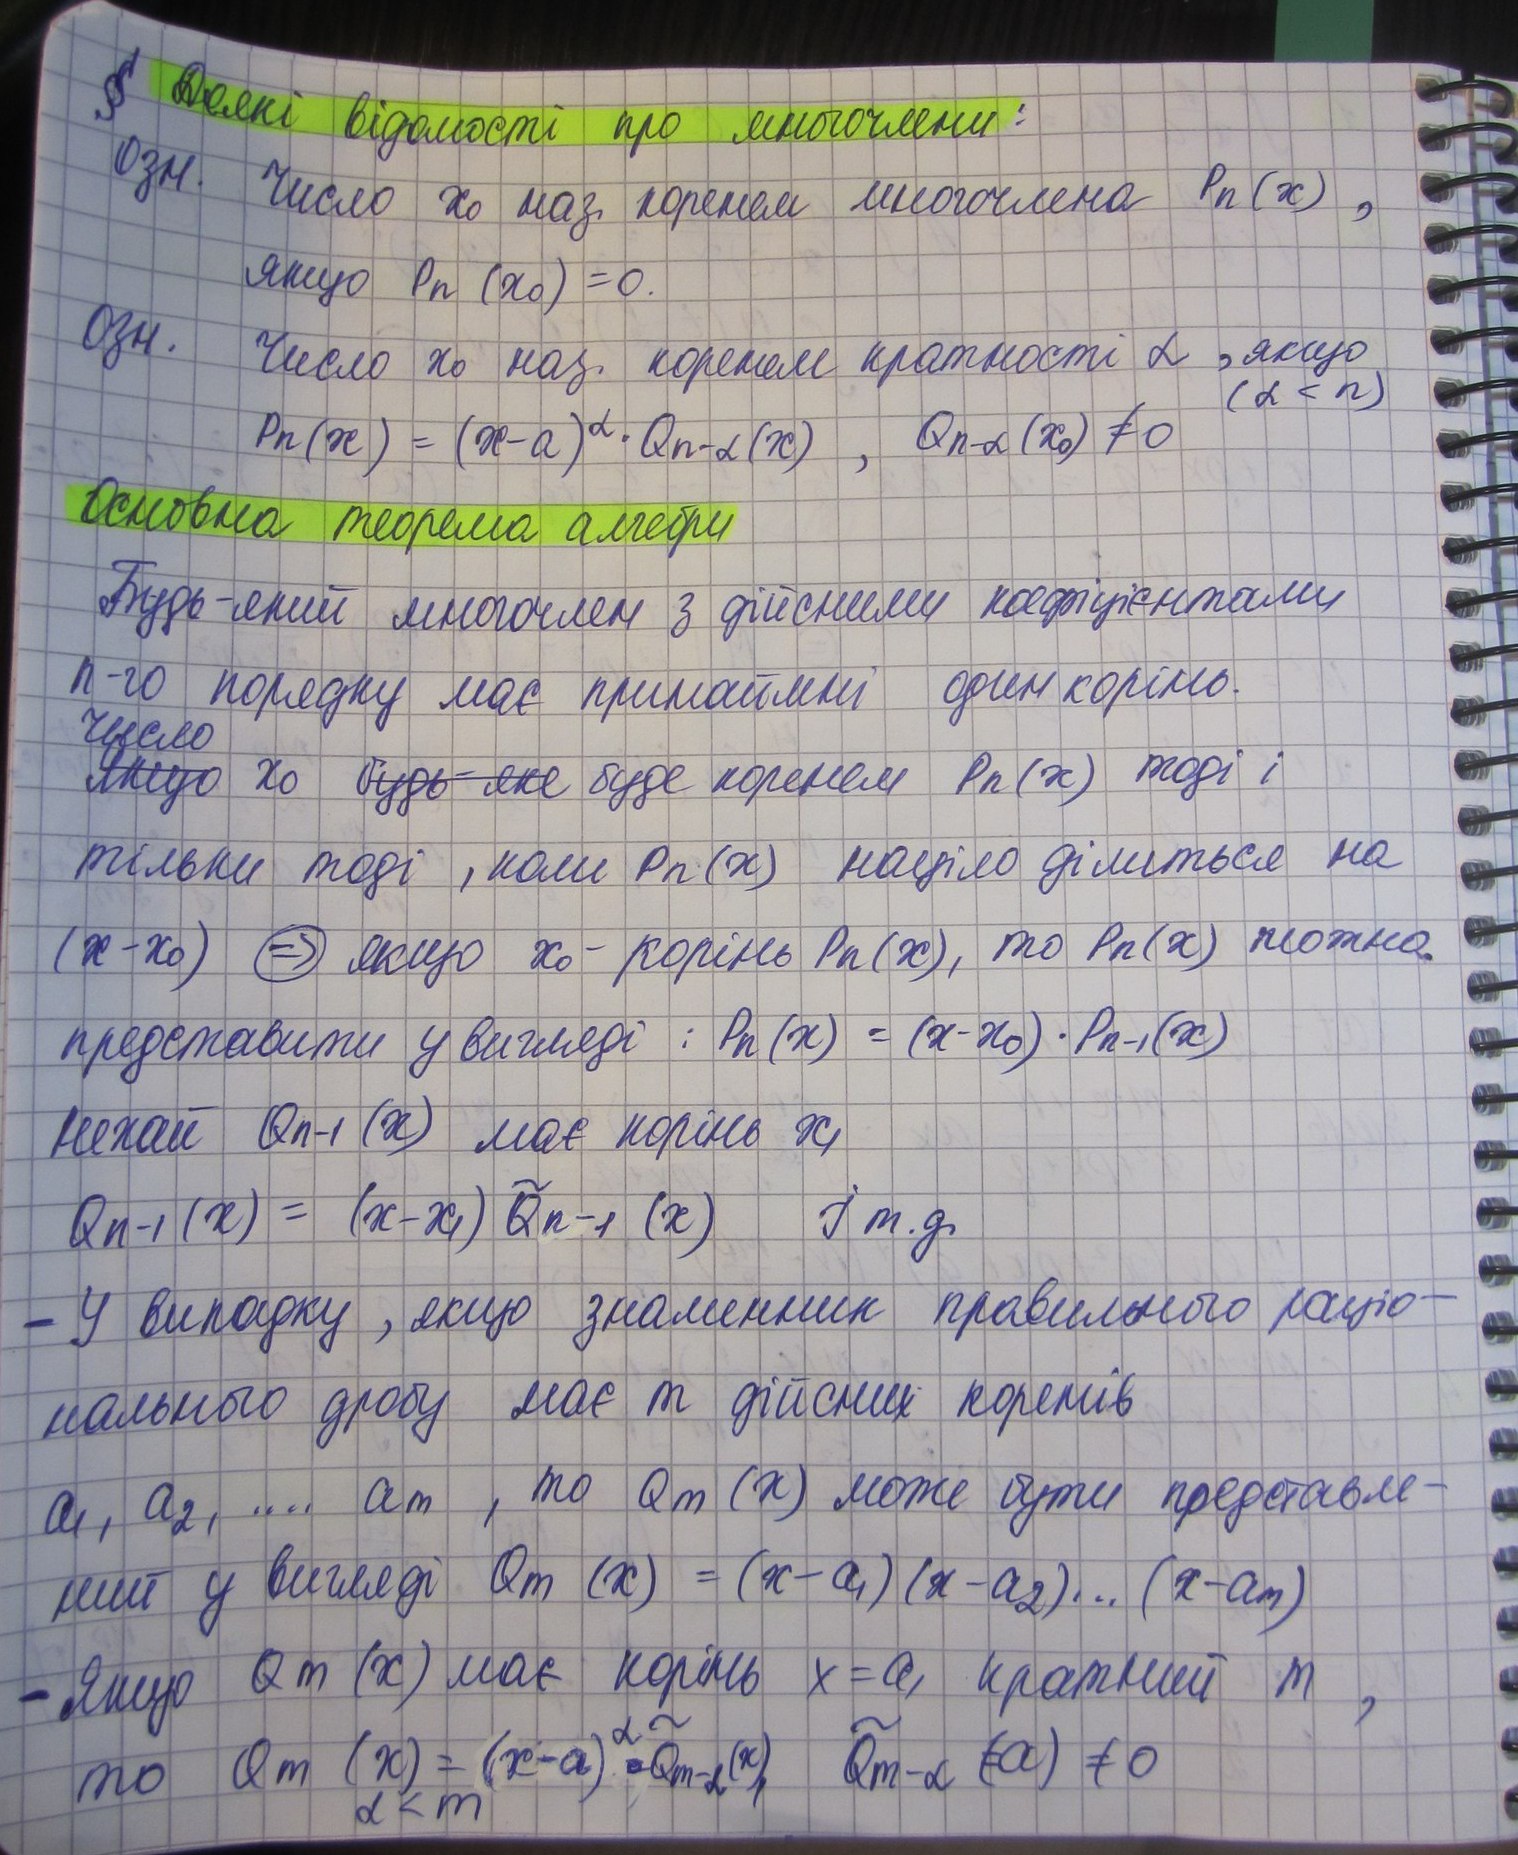 § Деякі відомості про многочлени:
Озн. Число x₀ наз. коренем многочлена Pn(x),
якщо Pn(x₀) = 0.
Озн. Число x₀ наз. коренем кратності α, якщо
(α < n)
Pn(x) = (x-a)^α · Qn-α(x), Qn-α(x₀) ≠ 0
Основна теорема алгебри
Будь-який многочлен з дійсними коефіцієнтами
n-го порядку має принаймні один корінь.
Число
Якщо x₀ будь-яке буде коренем Pn(x) тоді і
тільки тоді, коли Pn(x) націло ділиться на
(x-x₀) ⇒ якщо x₀ - корінь Pn(x), то Pn(x) можна
представити у вигляді: Pn(x) = (x-x₀)·Pn-1(x)
Нехай Qn-1(x) має корінь x₁
Qn-1(x) = (x-x₁) Q̃n-1(x) і т.д.
- У випадку, якщо знаменник правильного раціо-
нального дробу має m дійсних коренів
a₁, a₂, .... am, то Qm(x) може бути представле-
ний у вигляді Qm(x) = (x-a₁)(x-a₂)...(x-am)
- Якщо Qm(x) має корінь x=a, кратний m,
то Qm(x) = (x-a)^α · Q̃m-α(x), Q̃m-α(a) ≠ 0
α < m